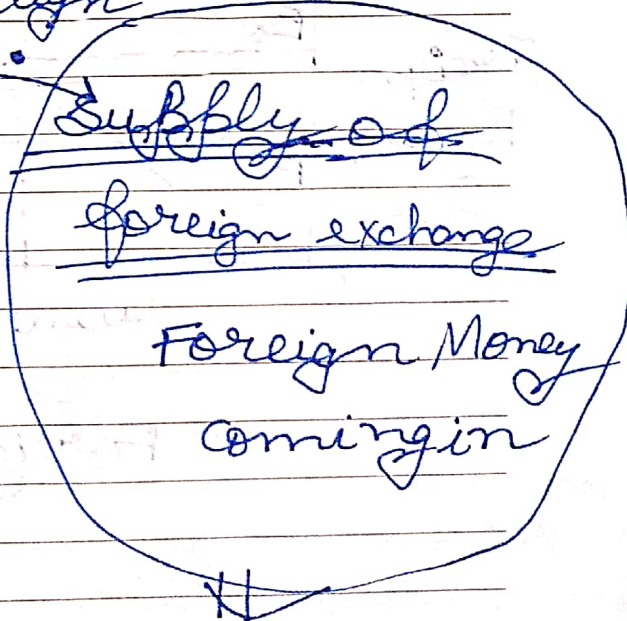 Supply of
foreign exchange
Foreign Money
coming in